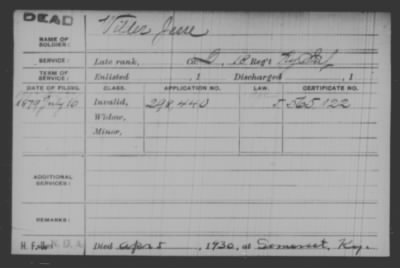 DEAD
NAME OF SOLDIER: Jesse
SERVICE: Late rank, Co. D, 18 Reg't Ky Inf
TERM OF SERVICE: Enlisted , 1 Discharged , 1
DATE OF FILING. CLASS. APPLICATION NO. LAW. CERTIFICATE NO.
1879 July 10 Invalid, 298,440 565,122
Widow,
Minor,
ADDITIONAL SERVICES:
REMARKS:
Died Apr 5, 1930, at Somerset, Ky.